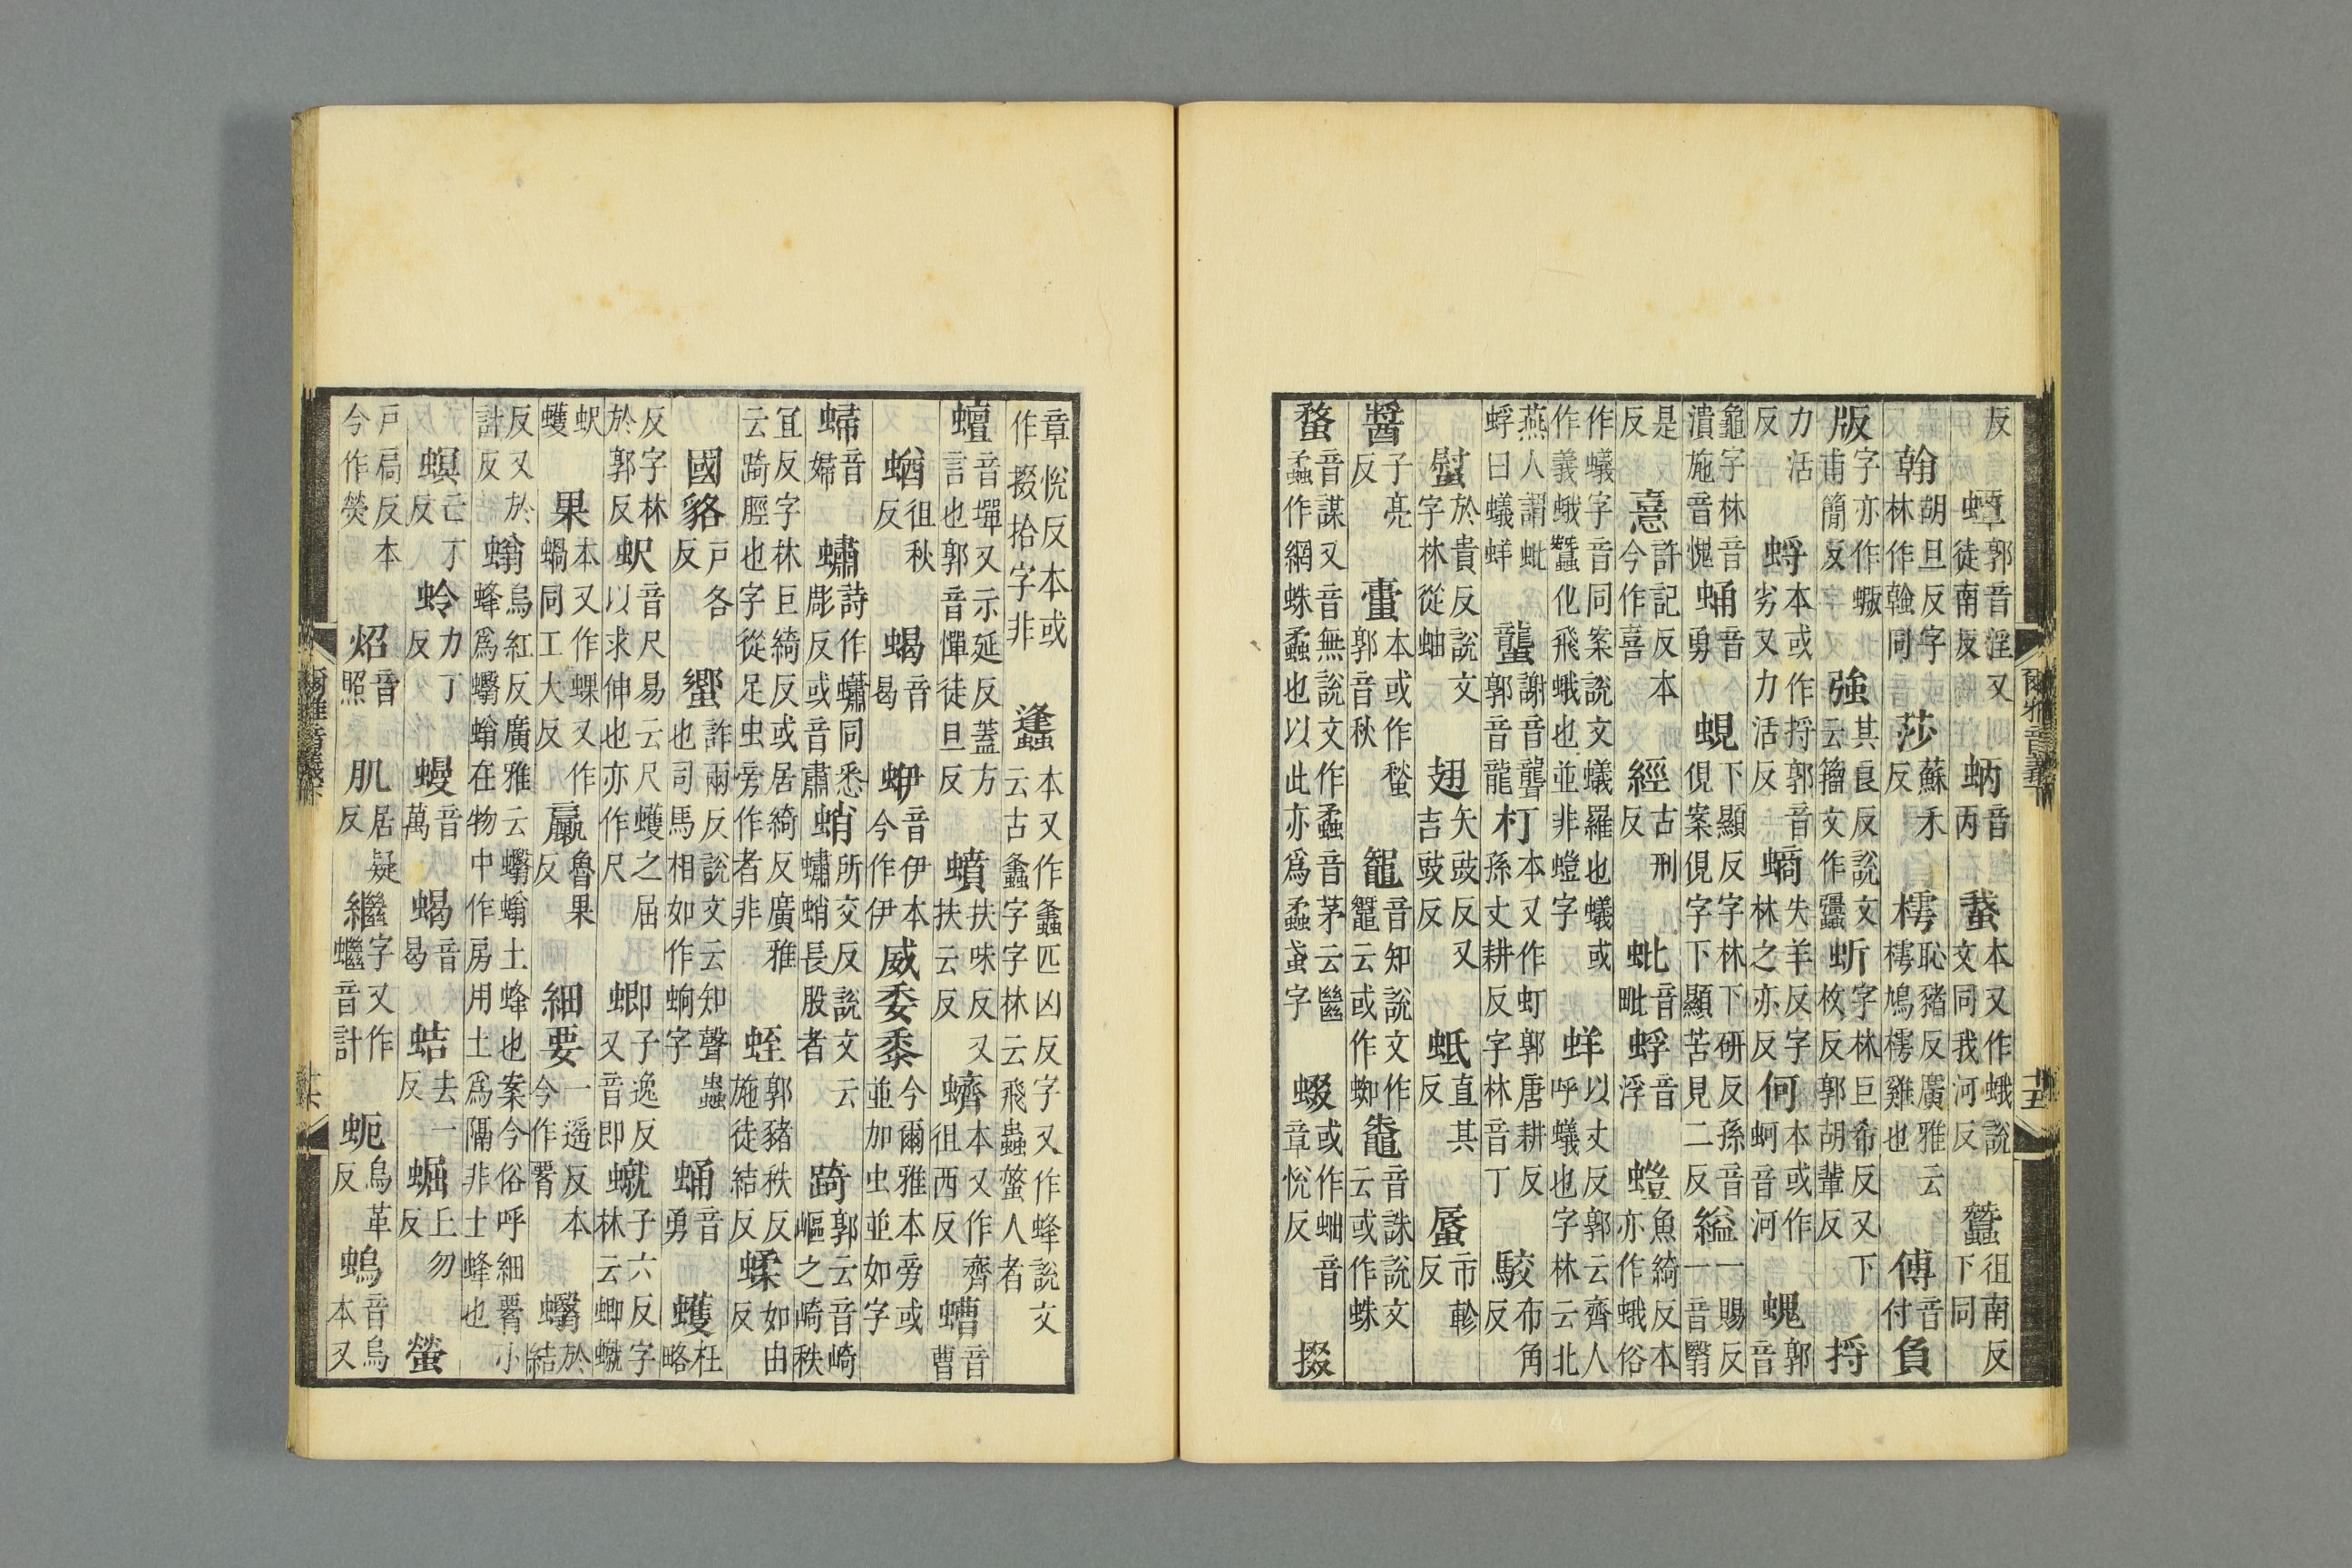 反蟫郭音淫又徒南反蛃音丙本又作蛾說文同我河反蠶徂南反下同
翰胡旦反字林作翰同莎蘇禾反樗恥豬反廣雅云樗鳩樗雞也傅音付負
版字亦作蝂甫簡反強其良反說文云籀文作蚚字林巨希反又下枚反郭胡輩反捋
力活反蛶本或作捋郭音劣又力活反螪失羊反字林之亦反何本或作蚵音河螝郭音
龜字林音潰施音愧蛹音勇蜆下顯反字林下研反孫音俔案俔字下顯苦見二反縊一賜反一音翳
是反憙許記反本今作喜經古刑反蚍音毗蜉音浮螘魚綺反本亦作蛾俗
作蟻字音同案說文蟻羅也蟻或作義蛾蠶化飛蛾也並非螘字蛘以丈反郭云齊人呼蟻也字林云北
燕人謂蚍蜉曰蟻蛘蠪謝音聾郭音龍朾本又作虰郭唐耕反孫丈耕反字林音丁駮布角反
螱於貴反說文字林從蚰翅矢豉反又吉豉反蚳直其反蜃市軫反
醬子亮反本或作郭音秋鼅音知說文作鼅云或作蜘鼄音誅說文云或作蛛
蝥音謀又音無說文作蟊音茅云蠿蟊作網蛛蟊也以此亦為蟊字蝃或作音章悅反掇
爾雅音義下
十五
章悅反本或作掇拾字非本又作蠭匹凶反字又作蜂說文云古蠭字字林云飛蟲螫人者
蟺音墠又示延反蓋方言也郭音憚徒旦反蟦扶味反又扶云反蠐本又作齊徂西反螬音曹
蝤徂秋反蝎音曷蛜音伊本今作伊威委黍今爾雅本旁或並加虫並如字
音婦蟰詩作蠨同悉彫反或音肅蛸所交反說文云蟰蛸長股者踦郭云音崎嶇之崎秩
宜反字林巨綺反或居綺反廣雅云踦脛也字從足虫旁作者非蛭郭豬秩反施徒結反蝚如由反
國貉戶各反蠁許兩反說文云知聲蟲也司馬相如作蚼字蛹音勇蠖杜略
反字林於郭反蚇音尺易云尺蠖之屈以求伸也亦作尺蝍子逸反又音即子六反字林云
蚇蠖果本又作蜾又作蝸同工大反蠃魯果反細要一遙反本今作蠮於結
反又於計反螉烏紅反廣雅云蠮螉土蜂也案今俗呼細小蜂為蠮螉在物中作房用土為隔非土蜂也
螟亡丁反蛉力丁反蟃音萬蝎音曷蛣去一反丘勿反螢
戶扃反本今作熒炤音照肌居疑反繼字又作音計蚅烏革反音烏本又
爾雅音義下
十六